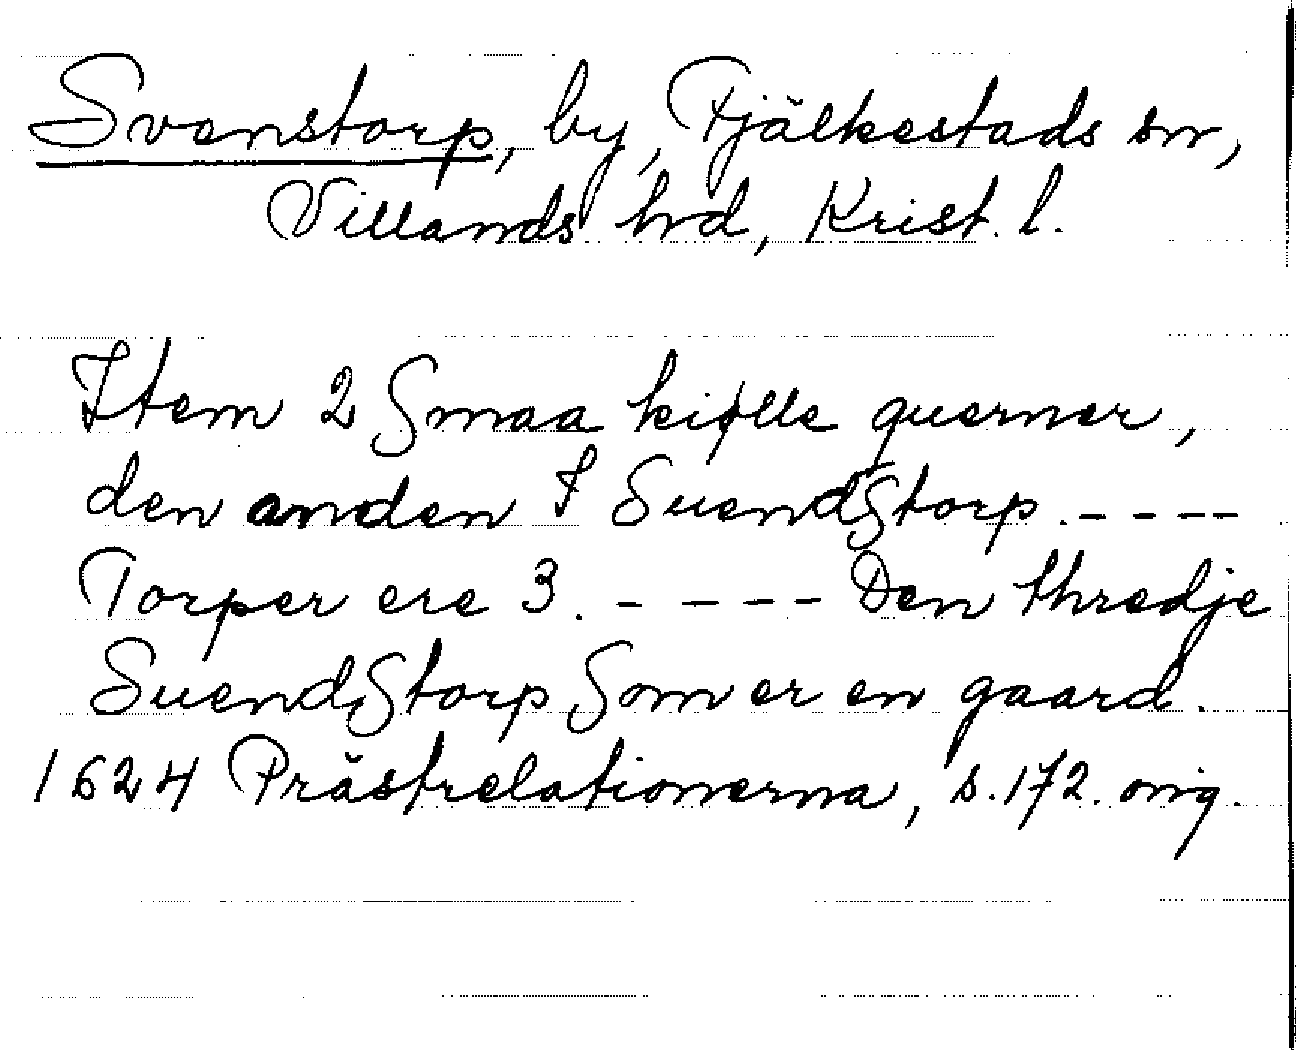 Svenstorp, by, Fjälkestads sn,
Villands hrd, Krist. l.
Item 2 Smaa kiølle querner,
den anden I SuendStorp. - - - -
Torper ere 3. - - - - Den thredje
SuendStorp Som er en gaard.
1624 Prästrelationerna, s. 172. orig.